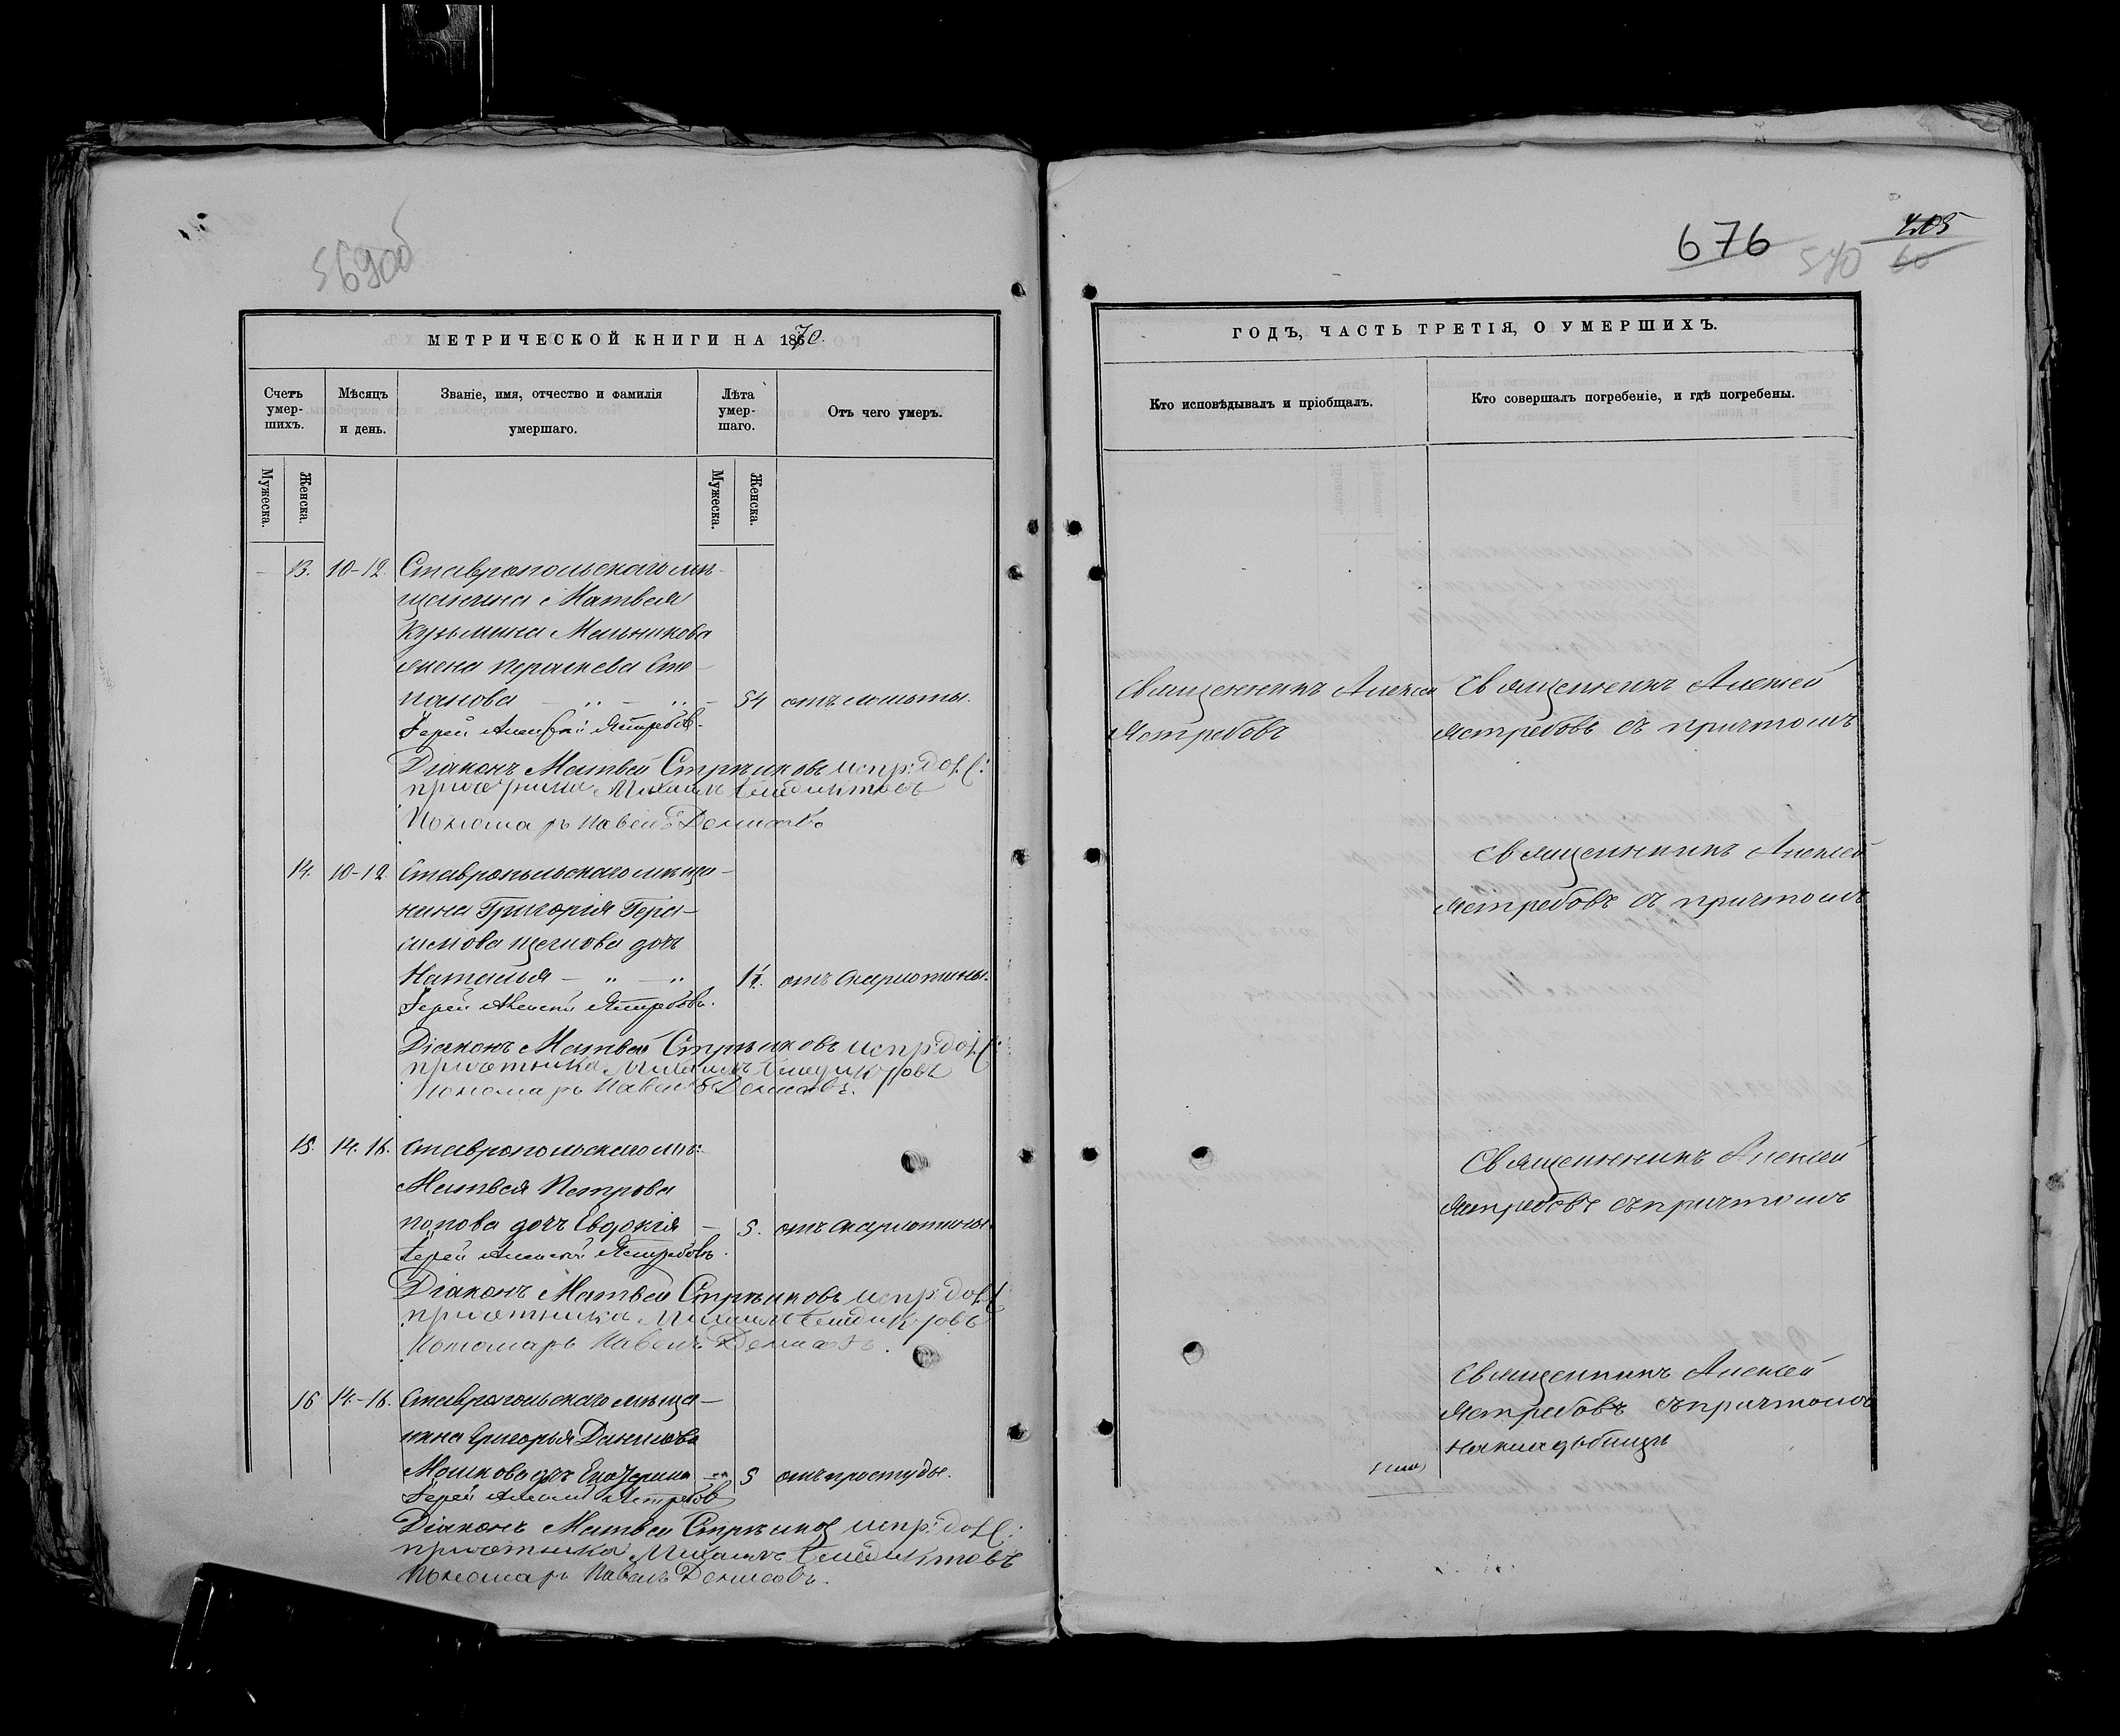 569об
МЕТРИЧЕСКОЙ КНИГИ НА 1870.
Счетъ умер-шихъ.
Мѣсяцъ и день.
Званіе, имя, отчество и фамилія умершаго.
Лѣта умер-шаго.
Отъ чего умеръ.
Мужеска.
Женска.
Мужеска.
Женска.
13. 10-12. Ставропольскаго мѣ-
щанина Матвея
Кузьмина Мельникова
жена Параскева Сте-
панова 54 отъ ломоты.
Іерей Алексѣй Ястребовъ.
Діаконъ Матвей Стрѣлковъ испр: дол:
причетника Михаилъ
Пономарь Павелъ Денисовъ
14. 10-12. Ставропольскаго мѣща-
нина Григорія Гера-
симова Щеглова дочь
Наталья отъ скарлотины.
Іерей Алексѣй Ястребовъ.
Діаконъ Матвей Стрѣлковъ испр: дол:
причетника Михаилъ
Пономарь Павелъ Денисовъ.
15. 14. 16. Ставропольскаго мѣ:
Матвея Петрова
Попова дочь Евдокія 5. отъ скарлотины.
Іерей Алексѣй Ястребовъ.
Діаконъ Матвей Стрѣлковъ испр: дол:
причетника Михаилъ
Пономарь Павелъ Денисовъ.
16 14.-16. Ставропольскаго мѣща-
нина Григорья Данилова
Мошкова дчь Екатерина 5 отъ простуды.
Іерей Алексѣй Ястребов
Діаконъ Матвей Стрѣлков испр: дол:
причетника Михаилъ
Пономарь Павелъ Денисовъ.
676
570
405
60
ГОДЪ, ЧАСТЬ ТРЕТІЯ, О УМЕРШИХЪ.
Кто исповѣдывалъ и пріобщалъ.
Кто совершалъ погребеніе, и гдѣ погребены.
Священникъ Алексей
Ястребовъ
Священникъ Алексей
Ястребовъ съ причтомъ
Священникъ Алексей
Ястребовъ съ причтомъ
Священникъ Алексей
Ястребовъ съ причтомъ
Священникъ Алексей
Ястребовъ съ причтомъ
на кладбищѣ